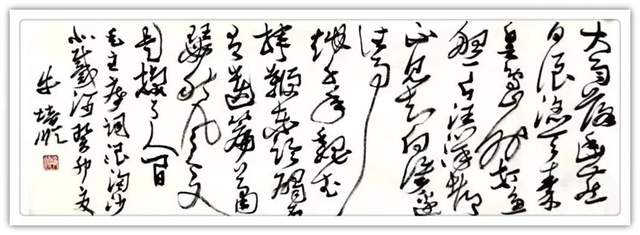 大雨落幽燕
白浪滔天秦
皇岛外打鱼
船一片汪洋都
不见知向谁边
往事
越千年魏武
挥鞭东临碣石
有遗篇萧
瑟秋风今又
是换了人间
毛主席词浪淘沙
北戴河癸卯夏